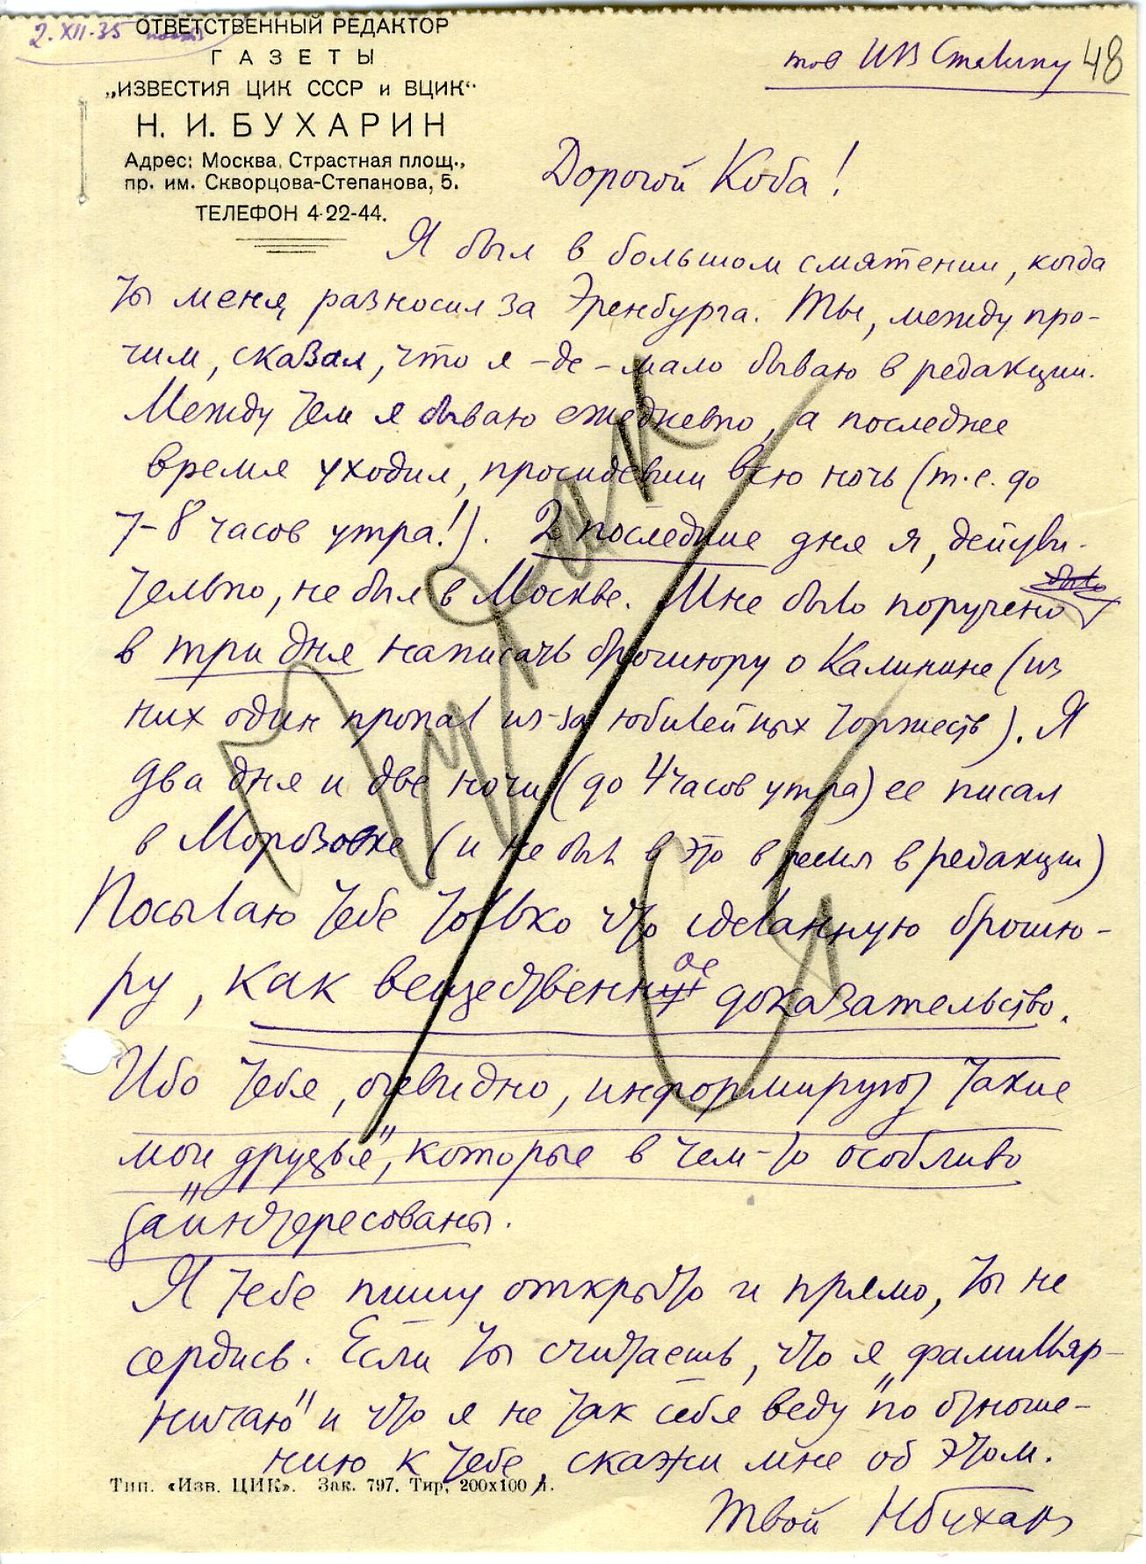 2.XII.35
ОТВЕТСТВЕННЫЙ РЕДАКТОР
ГАЗЕТЫ
„ИЗВЕСТИЯ ЦИК СССР и ВЦИК“
Н. И. БУХАРИН
Адрес: Москва, Страстная площ.,
пр. им. Скворцова-Степанова, 5.
ТЕЛЕФОН 4-22-44.
тов ИВ Сталину
48
Дорогой Коба!
Я был в большом смятении, когда
ты меня разносил за Эренбурга. Ты, между про-
чим, сказал, что я -де- мало бываю в редакции.
Между тем я бываю ежедневно, а последнее
время уходил, просидевши всю ночь (т.е. до
7-8 часов утра!). 2 последние дня я, действи-
тельно, не был в Москве. Мне было поручено
в три дня написать брошюру о Калинине (из
них один пропал из-за юбилейных торжеств). Я
два дня и две ночи (до 4 часов утра) ее писал
в Морозовке (и не был в это время в редакции)
Посылаю тебе только что сделанную брошю-
ру, как вещественное доказательство.
Ибо тебя, очевидно, информируют такие
мои „друзья“, которые в чем-то особливо
заинтересованы.
Я тебе пишу открыто и прямо, ты не
сердись. Если ты считаешь, что я „фамильяр-
ничаю“ и что я не так себя веду по отноше-
нию к тебе скажи мне об этом.
Твой НБухарин
Тип. «Изв. ЦИК». Зак. 797. Тир. 200х100 л.